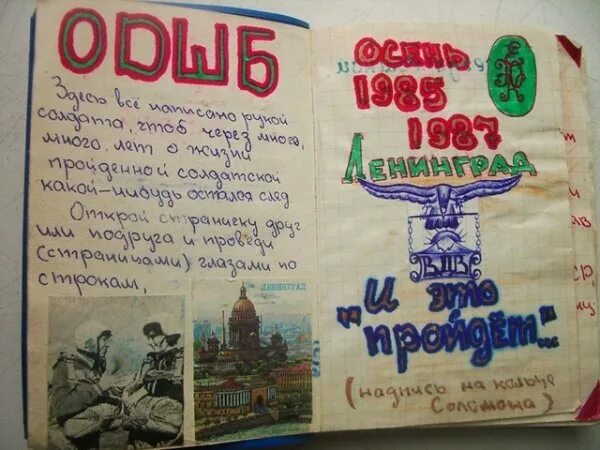 ОДШБ
Здесь всё написано рукой
солдата, чтоб через много,
много, лет о жизни
пройденной солдатской
какой-нибудь остался след.
Открой страничку друг
или подруга и проведи
(страницами) глазами по
строкам,
ЛЕНИНГРАД
ОСЕНЬ
1985
1987
ЛЕНИНГРАД
ВДВ
"И это
пройдёт"...
(надпись на кольце
Соломона)